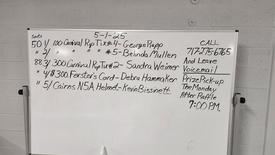 5-1-25
50 1/ 100 Carnival Rip Tix #4- Georgia Rapp
" 2/ " " " " #5- Belinda Mullen
88 3/ 300 Carnival Rip Tix #2- Sandra Weimer
" 4/ $300 Forster's Card- Debra Hammaker
" 5/ Cairns NSA Helmet- Kevin Bissnett
CALL
717-275-6765
And Leave
Voicemail
Prize Pick-up
The Monday
After Raffle
7:00 PM.